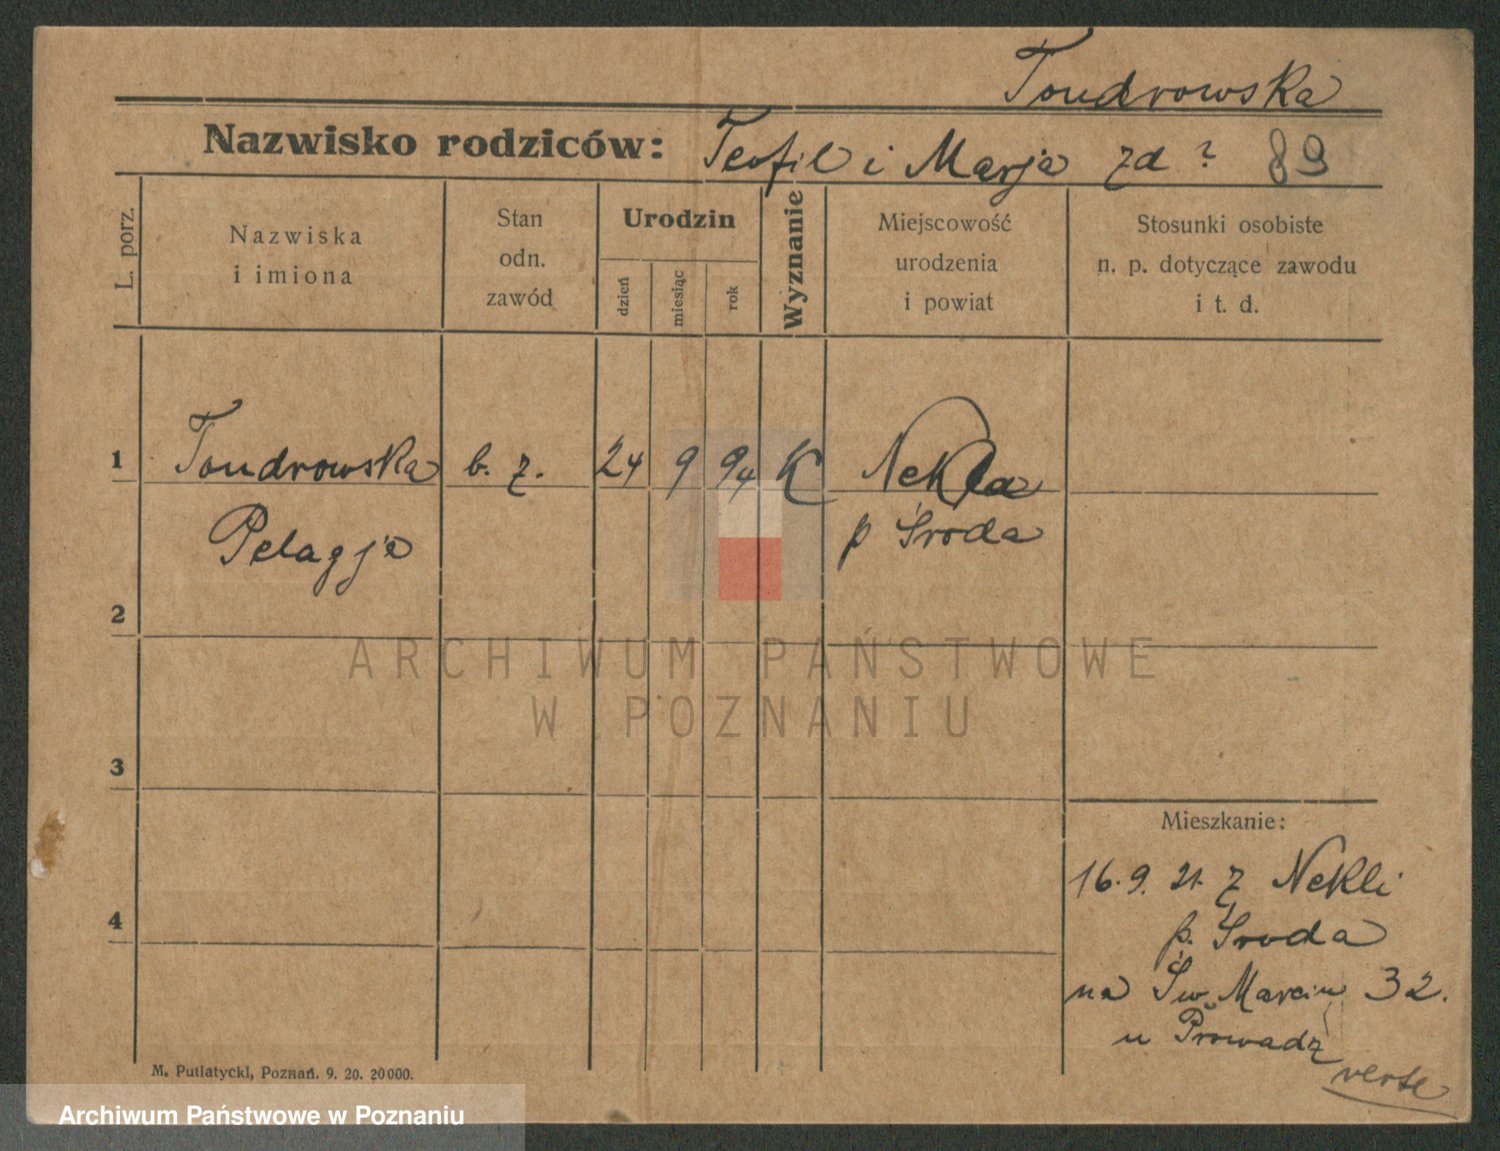 Tondrowska
Nazwisko rodziców: Teofil i Marja zd ? 89
L. porz.
Nazwiska
i imiona
Stan
odn.
zawód
Urodzin
dzień
miesiąc
rok
Wyznanie
Miejscowość
urodzenia
i powiat
Stosunki osobiste
n. p. dotyczące zawodu
i t. d.
1 Tondrowska b. z. 24 9 94 K Nekla
Pelagja p Środa
2
ARCHIWUM PAŃSTWOWE
W POZNANIU
3
Mieszkanie:
16. 9. 21. z Nekli
p. Środa
4
na Św. Marcin 32.
u Prowadz
verte
M. Putiatycki, Poznań. 9. 20. 20000.
Archiwum Państwowe w Poznaniu